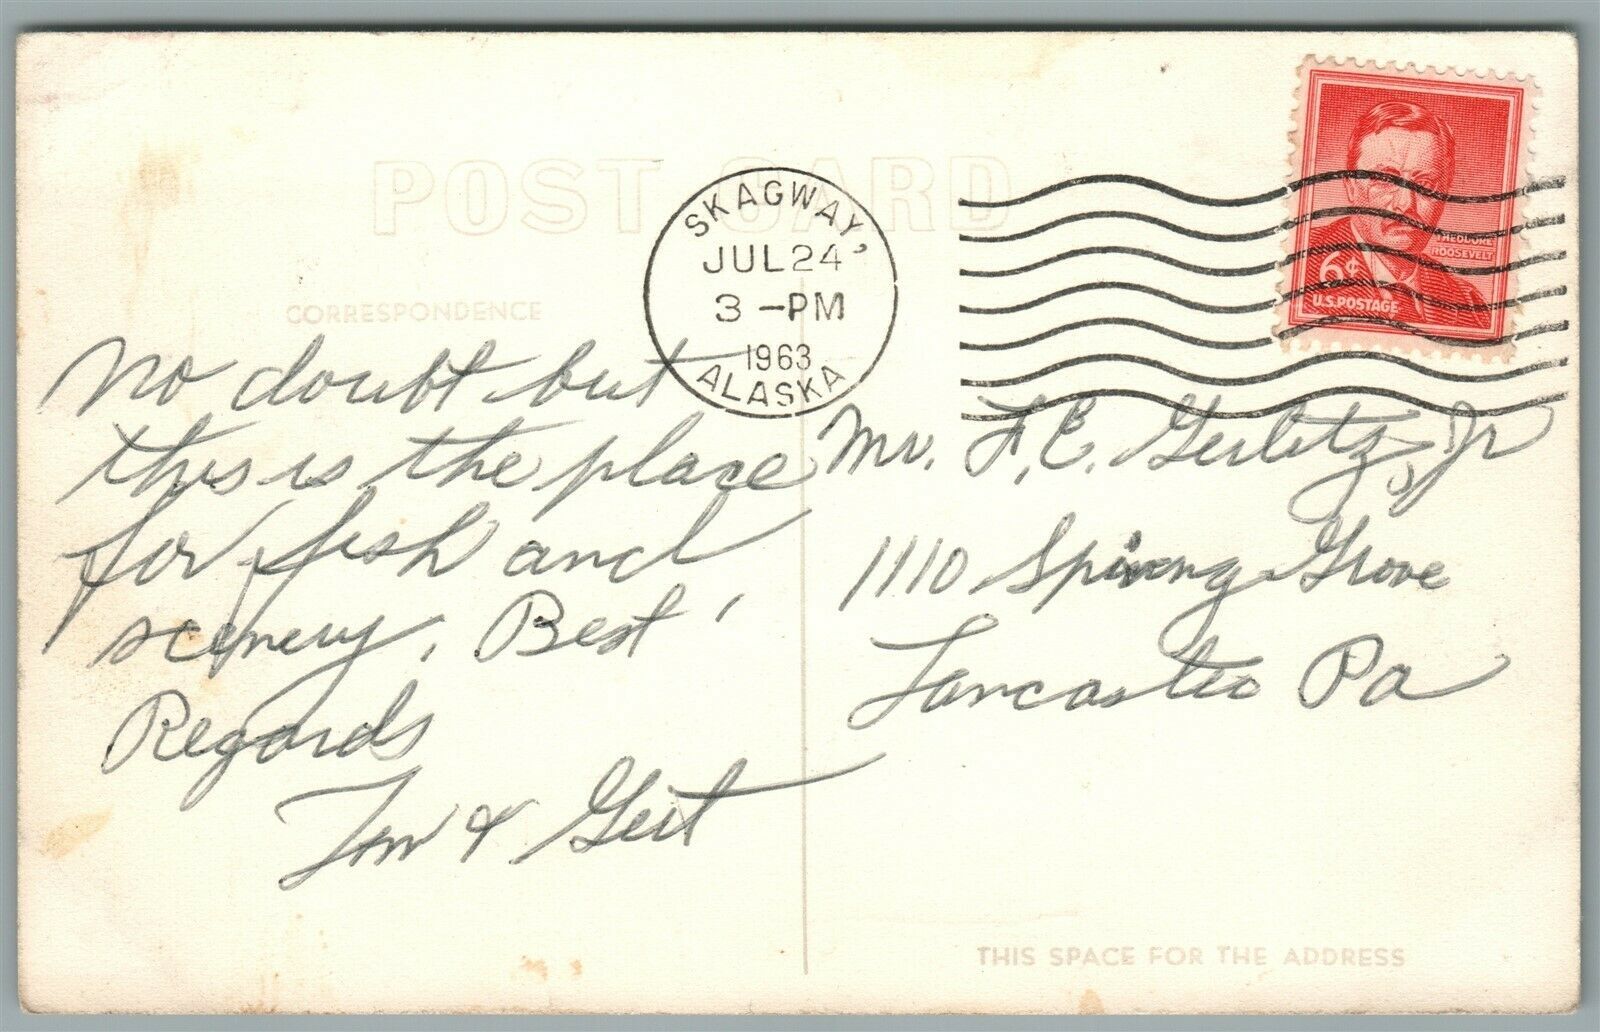 POST CARD
CORRESPONDENCE
SKAGWAY,
JUL 24
3 - PM
1963
ALASKA
THEODORE
ROOSEVELT
6¢
U.S. POSTAGE
No doubt but
this is the place
for fish and
scenery. Best
Regards
Tom & Gert
Mr. F. E. Gerlitz, Jr
1110 Spring Grove
Lancaster Pa
THIS SPACE FOR THE ADDRESS